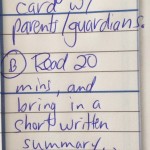 card w/
parents/guardians.
B Read 20
mins, and
bring in a
short written
summary...